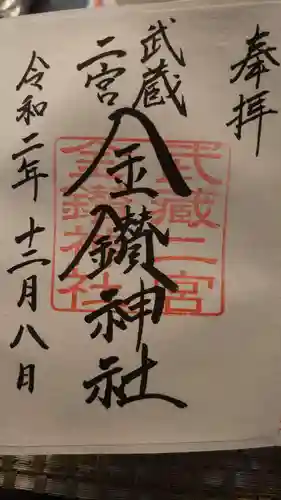 奉拝
武蔵
二宮
金鑚神社
令和二年 十二月八日
武蔵二宮
金鑚神社